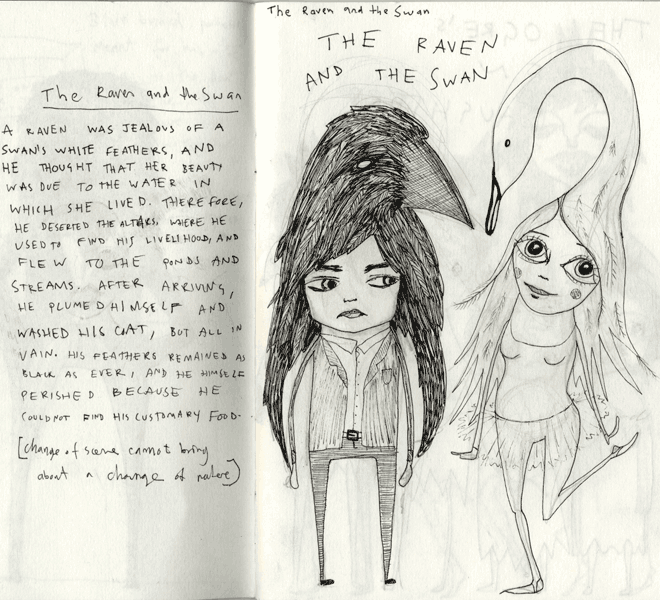 The Raven and the Swan
A RAVEN WAS JEALOUS OF A
SWAN'S WHITE FEATHERS, AND
HE THOUGHT THAT HER BEAUTY
WAS DUE TO THE WATER IN
WHICH SHE LIVED. THEREFORE,
HE DESERTED THE ALTARS, WHERE HE
USED TO FIND HIS LIVELIHOOD, AND
FLEW TO THE PONDS AND
STREAMS. AFTER ARRIVING,
HE PLUMED HIMSELF AND
WASHED HIS COAT, BUT ALL IN
VAIN. HIS FEATHERS REMAINED AS
BLACK AS EVER, AND HE HIMSELF
PERISHED BECAUSE HE
COULD NOT FIND HIS CUSTOMARY FOOD.
[change of scene cannot bring
about a change of nature)
The Raven and the Swan
THE RAVEN
AND THE SWAN